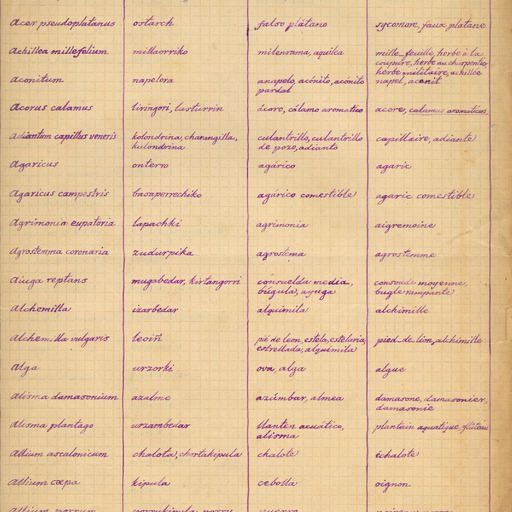 Acer pseudoplatanus ostarch falso plátano sycomore, faux platane
Achillea millefolium millaorriko milenrama, aquilea mille-feuille, herbe à la
coupure, herbe au charpentier
herbe militaire, achillée
Aconitum napelora anapelo, acónito, acónito napel, aconit
pardal
Acorus calamus liringori, lursurrin ácoro, cálamo aromatico acore, calamus aromaticus
Adiantum capillus veneris kolondrina, charangilla, culantrillo, culantrillo capillaire, adiante
kulondrina de pozo, adianto
Agaricus onterro agárico agaric
Agaricus campestris basaperrechiko agárico comestible agaric comestible
Agrimonia eupatoria lapachki agrimonia aigremoine
Agrostemma coronaria zudurpika agrostema agrostemme
Aiuga reptans mugabedar, kirtangorri consuelda media, consoude moyenne,
búgula, ayuga bugle rampante
Alchemilla izarbedar alquimila alchimille
Alchemilla vulgaris leoiñ pié de leon, estela, estelaria, pied-de-lion, alchimille
estrellada, alquimila
Alga urzorki ova, alga algue
Alisma damasonium azalme azúmbar, almea damasone, damasonier,
damasonie
Alisma plantago urzambedar llantén acuático, plantain aquatique, flûteau
alisma
Allium ascalonicum chalota, chortakipula chalote échalote
Allium cæpa kipula cebolla oignon
Allium porrum porrukipula, porru puerro